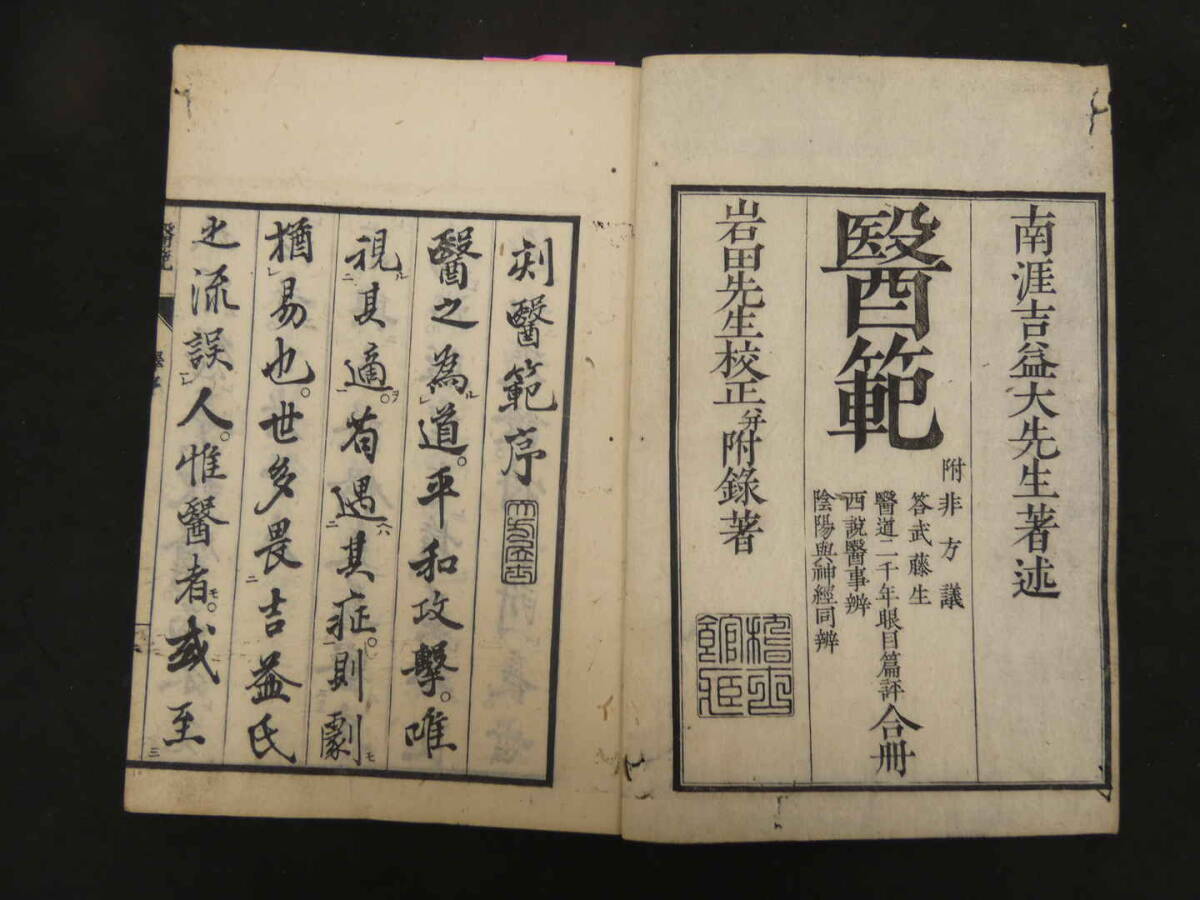 南涯吉益大先生著述
醫範
附非方議
答武藤生
醫道二千年眼目篇評
西說醫事辨
陰陽與神經同辨
合冊
岩田先生校正并附錄著
刻醫範序
醫之為ル道。平和攻擊。唯
視ル二其適ヲ。苟遇ハ二其症ニ。則劇モ
猶易也。世多畏二吉益氏
之流誤一レ人。惟醫者モ。或至三
醫範